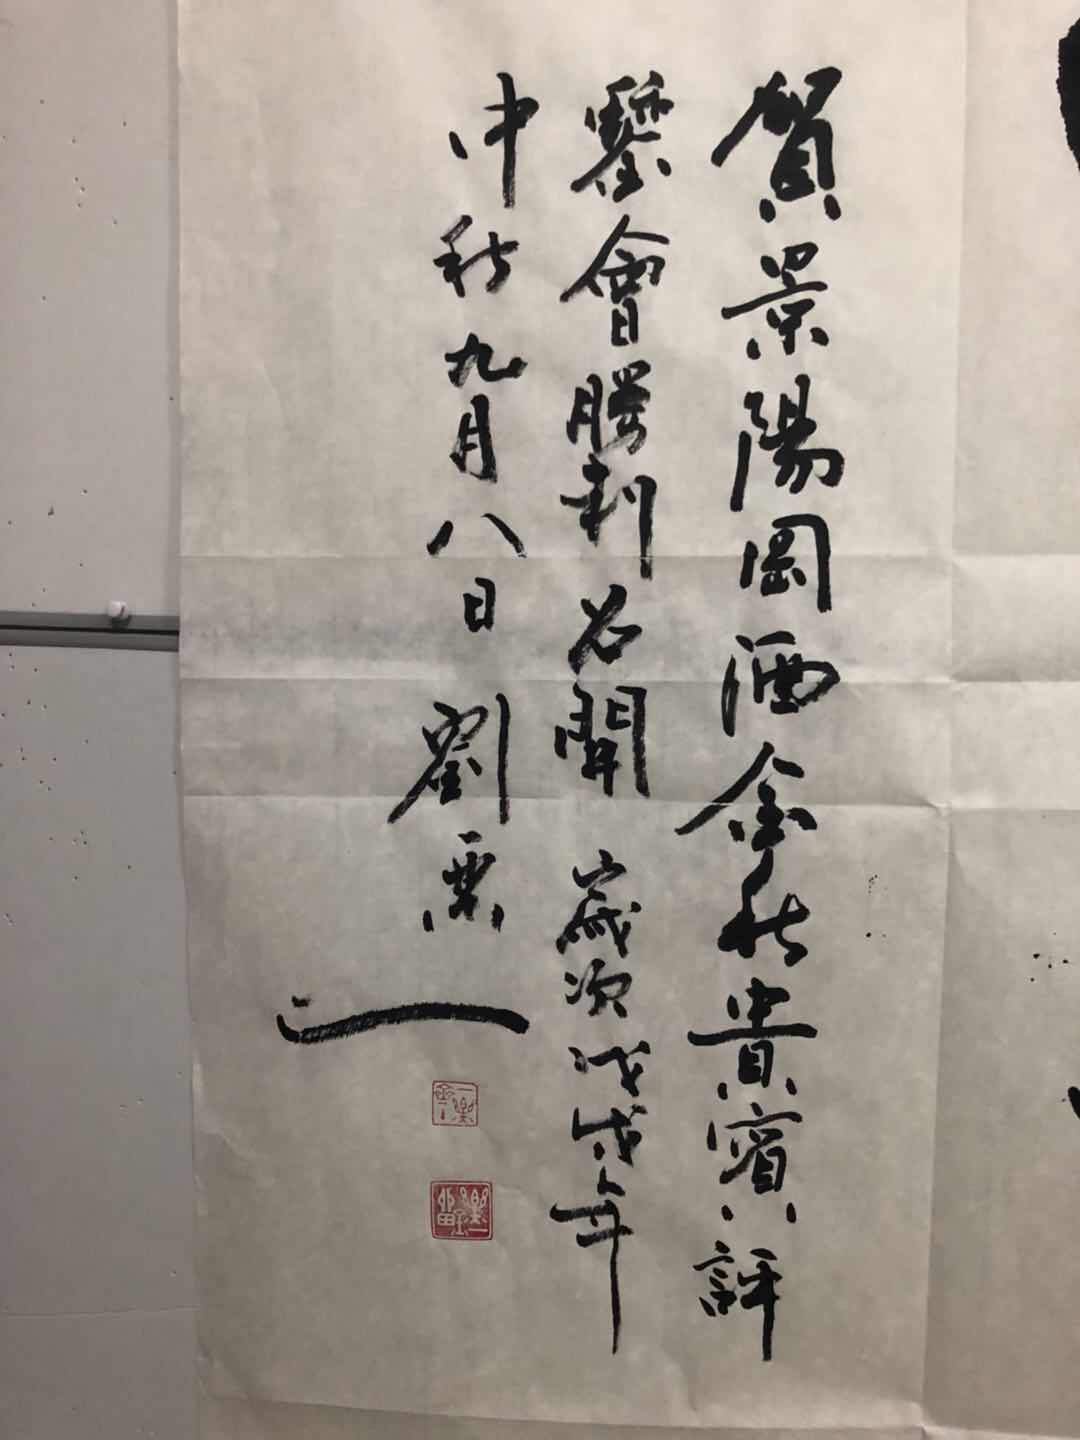 賀景陽岡酒金秋貴賓評
鑒會勝利召開 歲次戊戌年
中秋九月八日 劉栗一